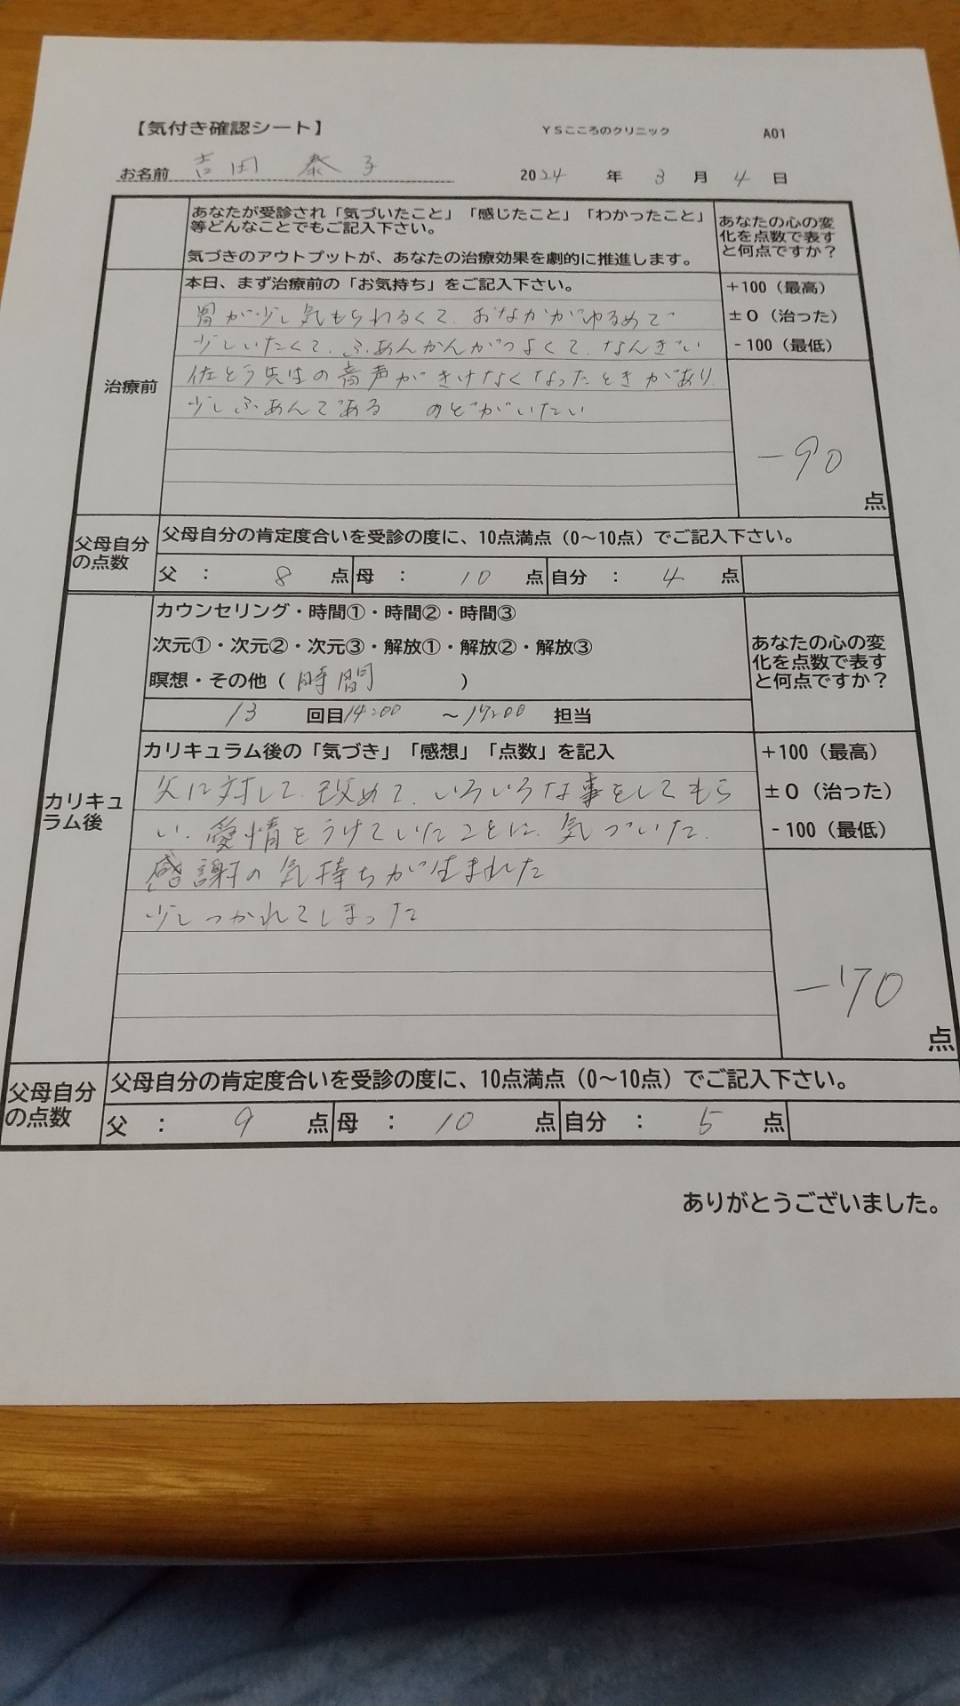 【気付き確認シート】 YSこころのクリニック A01
お名前 吉田 泰子 2024 年 3 月 4 日
あなたが受診され「気づいたこと」「感じたこと」「わかったこと」
等どんなことでもご記入下さい。
気づきのアウトプットが、あなたの治療効果を劇的に推進します。
あなたの心の変
化を点数で表す
と何点ですか？
治療前
本日、まず治療前の「お気持ち」をご記入下さい。
胃が少し気もちわるくて、おなかがゆるめで
少しいたくて、ふあんかんがつよくて、なんぎい
佐とう先生の音声がきけなくなったときがあり、
少しふあんである のどがいたい
+100（最高）
±0（治った）
-100（最低）
-90
点
父母自分
の点数
父母自分の肯定度合いを受診の度に、10点満点（0～10点）でご記入下さい。
父 : 8 点 母 : 10 点 自分 : 4 点
カリキュ
ラム後
カウンセリング・時間①・時間②・時間③
次元①・次元②・次元③・解放①・解放②・解放③
瞑想・その他（ 時間 ）
13 回目 14:00 ～17:00 担当
あなたの心の変
化を点数で表す
と何点ですか？
カリキュラム後の「気づき」「感想」「点数」を記入
父に対して、改めて、いろいろな事をしてもら
い、愛情をうけていたことに、気づいた、
感謝の気持ちが生まれた
少しつかれてしまった
+100（最高）
±0（治った）
-100（最低）
-70
点
父母自分
の点数
父母自分の肯定度合いを受診の度に、10点満点（0～10点）でご記入下さい。
父 : 9 点 母 : 10 点 自分 : 5 点
ありがとうございました。